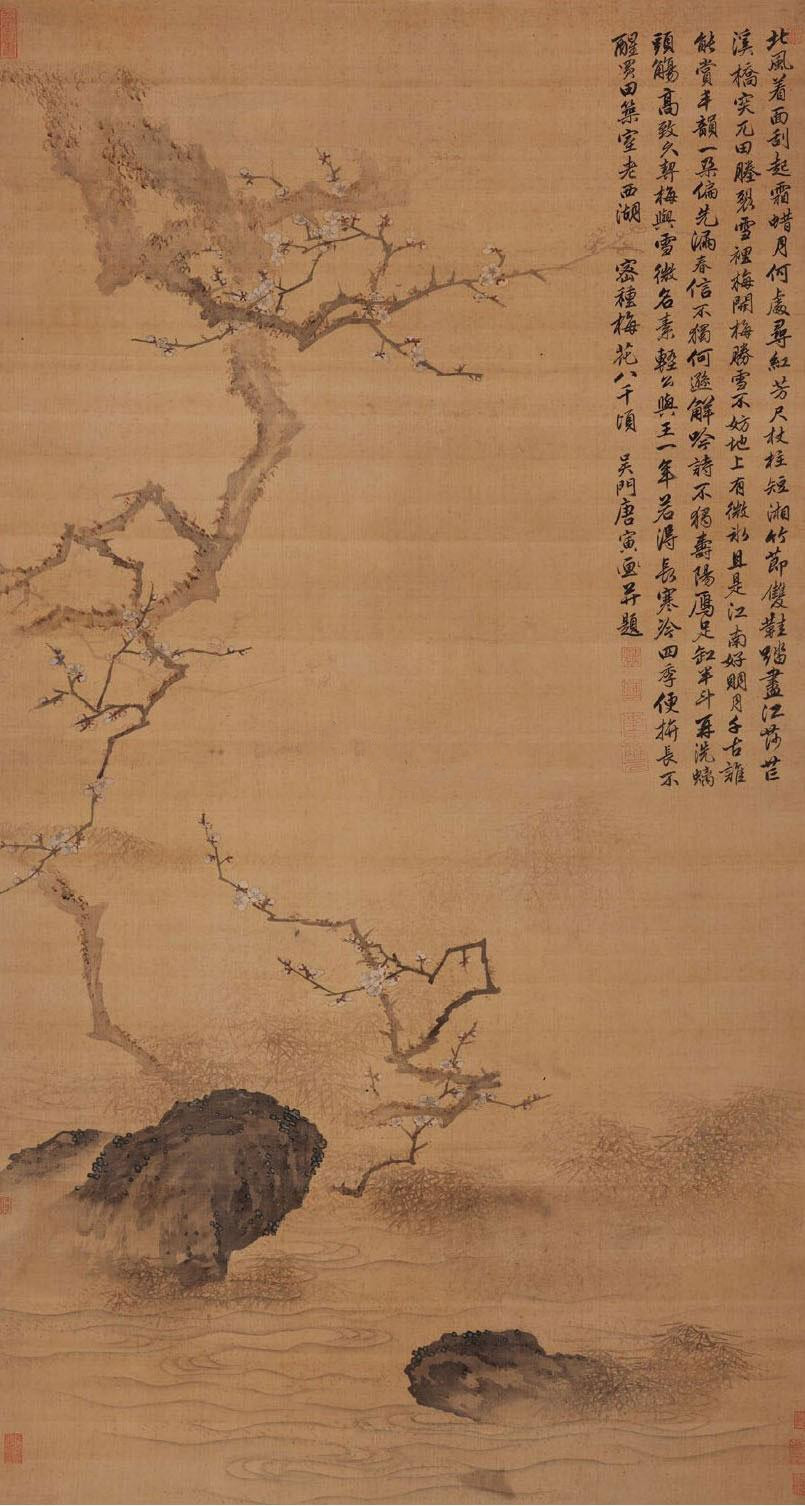 北風着面刮起霜蜡月何處尋紅芳尺杖柱短湘竹節雙鞋踏盡江莎芒
溪橋突兀田塍裂雪裡梅開梅勝雪不妨地上有微冰且是江南好明月千古誰
能賞丰韻一朵偏先漏春信不獨何遜解吟詩不獨壽陽鴈足缸半斗再洗螭
頭觴高致久契梅與雪微名素輕公與王一年若得長寒冷四季便拚長不
醒買田築室老西湖 密種梅花八千頃 吳門唐寅画并題